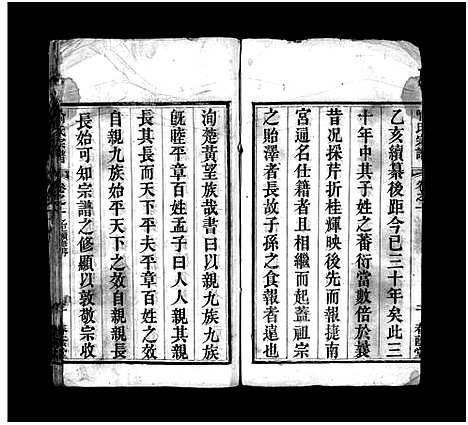 乙亥續纂後距今已三十年矣此三
十年中其子姓之蕃衍當數倍於曩
昔况採芹折桂輝映後先報捷南
宮通名仕籍者且相繼而起蓋祖宗
之貽澤者長故子孫之食報者遠也
洵楚黃望族哉書曰以親九族九族
既睦平章百姓孟子曰人人親其親
長其長而天下平夫平章百姓之效
自親九族始平天下之效自親親長
長始可知宗譜之修顯以敦敬宗收
氏宗譜
卷之一